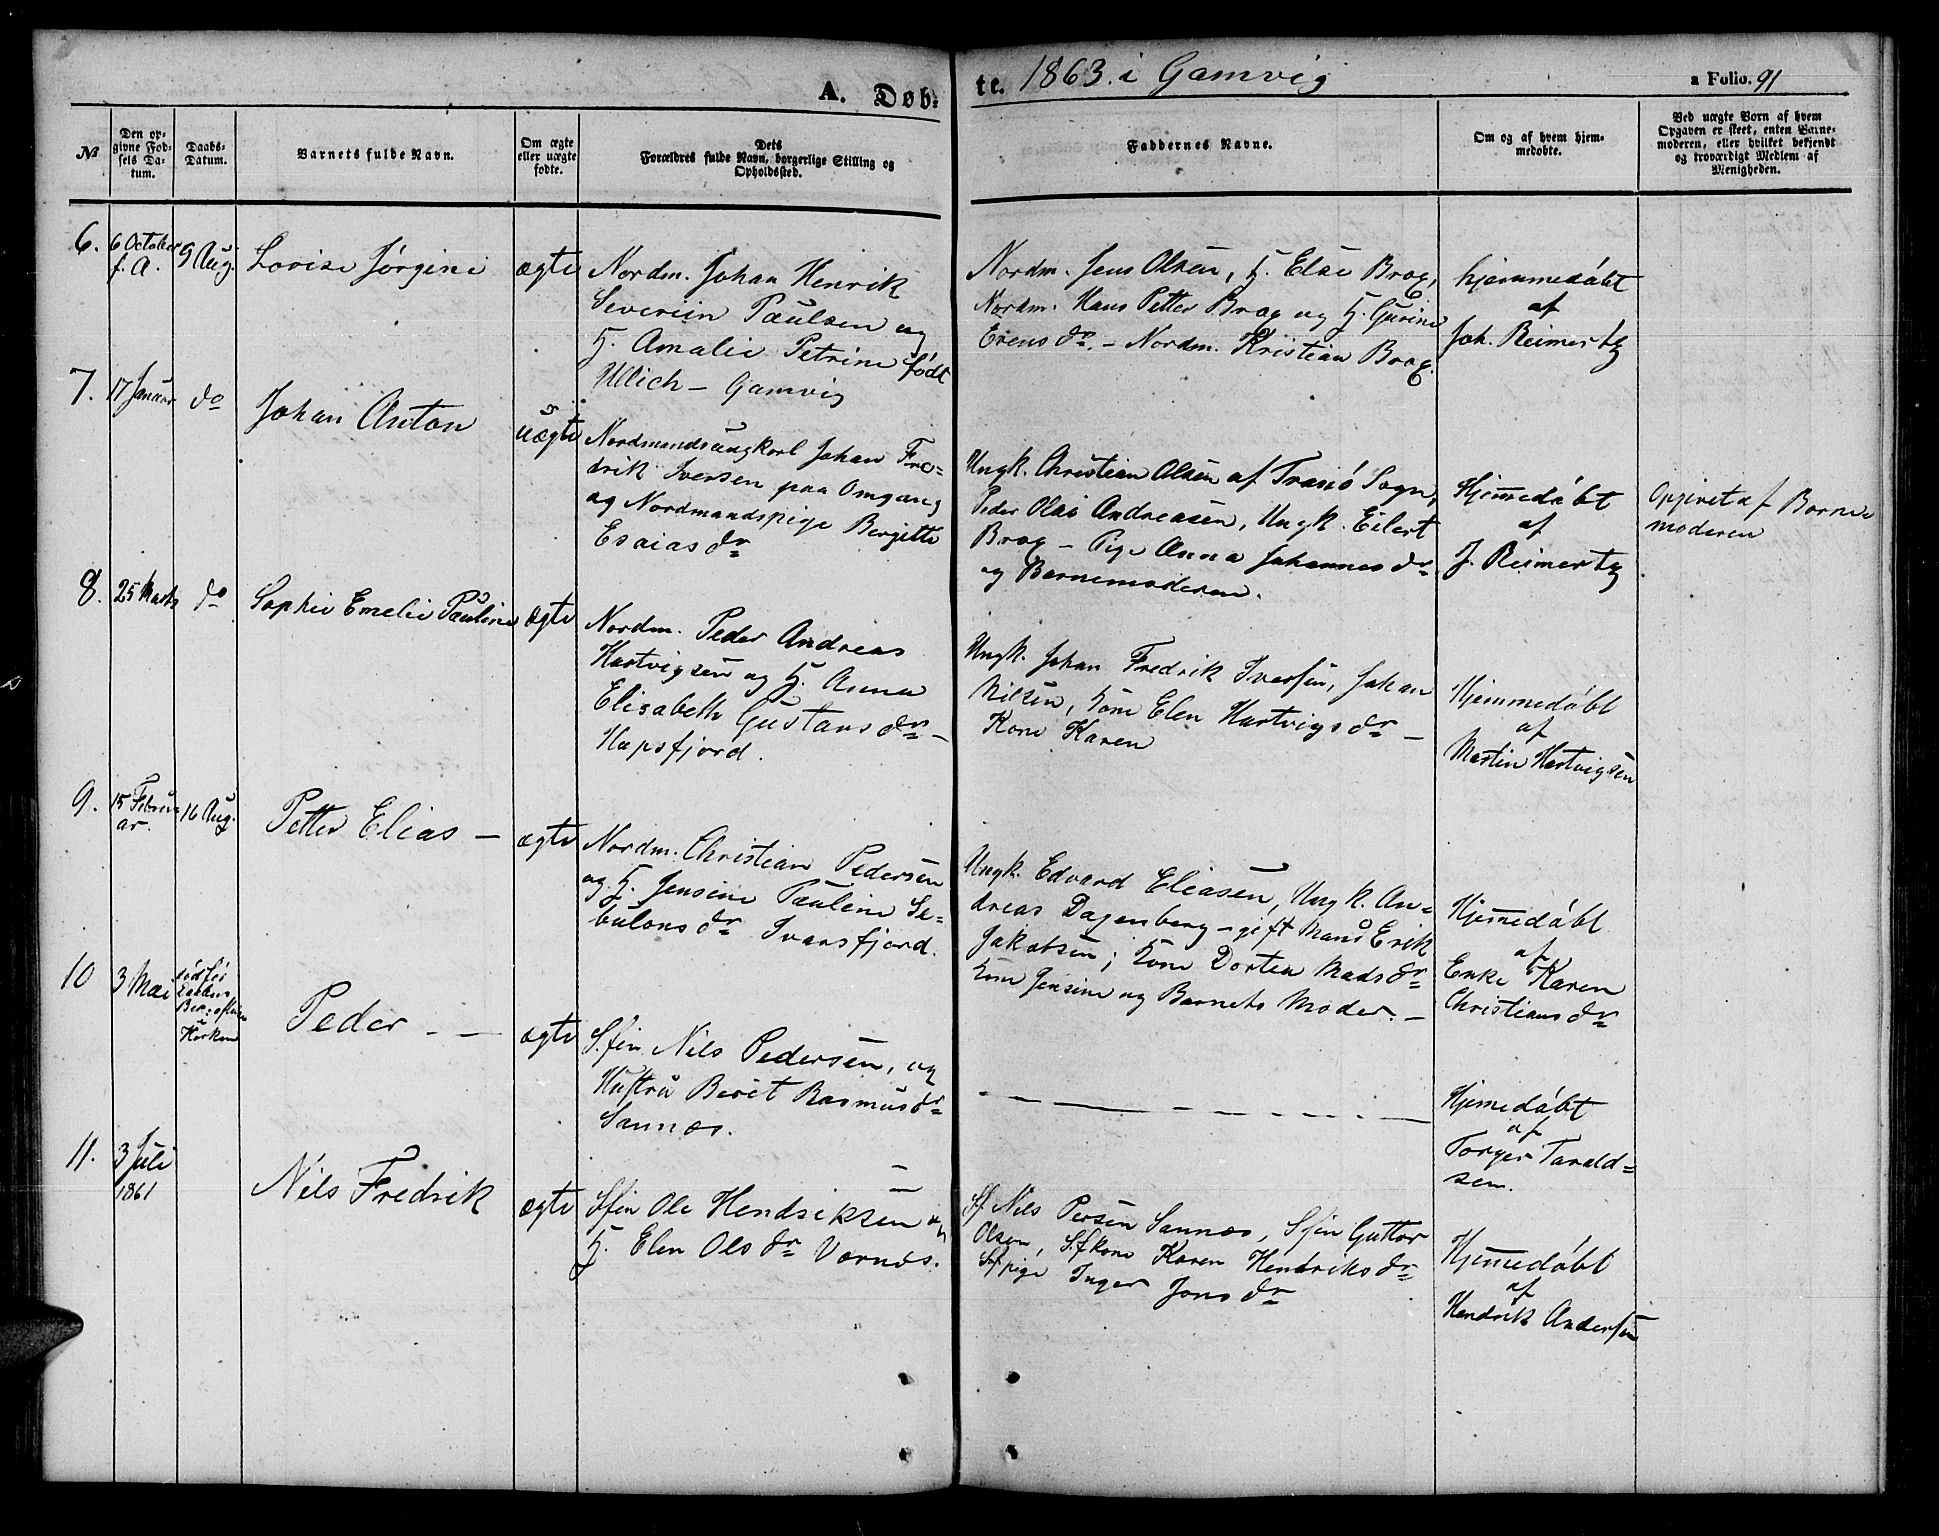 A. Døb-
te. 1863. i Gamvig
a Folio. 91
№
Den op-
givne Fød-
sels Da-
tum.
Daabs-
Datum.
Barnets fulde Navn.
Om ægte
eller uægte
fødte.
Dets
Forældres fulde Navn, borgerlige Stilling og
Opholdssted.
Faddernes Navne.
Om og af hvem hjem-
medøbte.
Ved uægte Børn af hvem
Opgaven er skeet, enten Barne-
moderen, eller hvilket bekjendt
og troværdigt Medlem af
Menigheden.
6.
6 October
f. A.
9 Aug.
Lovise Jørgine
ægte
Nordm. Johan Henrik
Severiin Paulsen og
H. Amalie Petrine født
Ulich - Gamvig
Nordm. Jens Olsen, H. Else Brox,
Nordm. Hans Petter Brox og H. Gurine
Evensdr. - Nordm. Kristian Brox.
hjemmedøbt
af
Joh. Reimertz
7.
17 Januar
do
Johan Anton
uægte
Nordmandsungkarl Johan Fre-
drik Iversen paa Omgang
og Nordmandspige Bergitte
Esaiasdr
Ungk. Christian Olsen af Tranø Sogn,
Peder Olai Andreasen, Ungk. Eilert
Brox - Pige Anna Johannesdr
og Barnemoderen.
Hjemedøbt
af
J. Reimertz
Opgivet af Barne
moderen
8.
25 Marts
do
Sophie Emelie Pauline
ægte
Nordm. Peder Andreas
Hartvigsen og H. Anna
Elisabeth Gustavsdr -
Hopsfjord.
Ungk. Johan Fredrik Iversen, Johan
Nilsen, Kone Elen Hartvigsdr -
Kone Karen
Hjemmedøbt
af
Martin Hartvigsen
9.
15 Febru-
ar.
16 Aug.
Petter Elias -
ægte
Nordm. Christian Pedersen
og H. Jensine Pauline Se-
bulonsdr Ivarsfjord.
Ungk. Edvard Eliasen, Ungk. An-
dreas Dagenberg - gift Mand Erik
Jakobsen; Kone Dorten Madsdr
Kone Jensine og Barnets Moder. -
Hjemedøbt
af
Enke Karen
Christiansdr
10
3 Mai
død før
Peder - -
ægte
S.fin Nils Pedersen, og
Hustru Beret Rasmusdr
Sannes.
Hjemedøbt
af
Torger Tarald-
sen.
11.
3 Juli
1861
Nils Fredrik
ægte
Sfin Ole Hendriksen og
H. Elen Olsdr Vornes.
Sf Nils Persen Sannes, Sfin Guttor
Olsen, S.fkone Karen Henriksdr
Sfpige Inger Jonsdr
Hjemedøbt
af
Hendrik Andersen